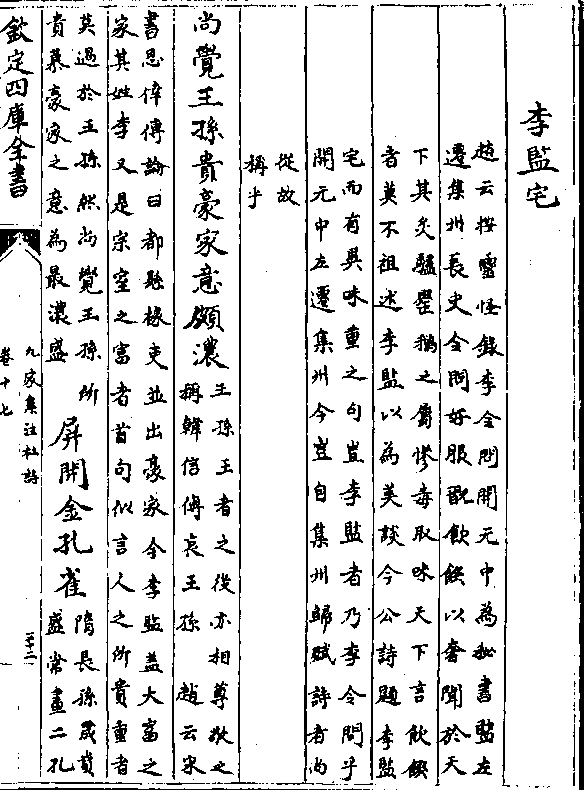 李監宅
趙云按靈怪錄李令問開元中為秘書監左
遷集州長史令問好服翫飲饌以奢聞於天
下其炙驢罌鵝之屬慘毒取味天下言飲饌
者莫不祖述李監以為美談今公詩題李監
宅而有異味重之句豈李監者乃李令問乎
開元中左遷集州今豈自集州歸賦詩者尚
從故
稱乎
尚覺王孫貴豪家意頗濃
王孫王者之後亦相尊敬之
稱韓信傳哀王孫 趙云宋
書恩倖傳論曰都縣掾吏並出豪家今李監蓋大富之
家其姓李又是宗室之富者首句似言人之所貴重者
莫過於王孫然尚覺王孫所
貴慕豪家之意為最濃盛
屏開金孔雀
隋長孫晟貴
盛嘗畫二孔
欽定四庫全書
九家集注杜詩
卷十七
二十二